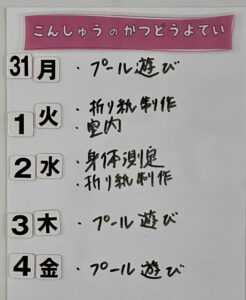 こんしゅうのかつどうよてい
31 月 ・プール遊び
1 火 ・折り紙制作
・室内
2 水 ・身体測定
・折り紙制作
3 木 ・プール遊び
4 金 ・プール遊び